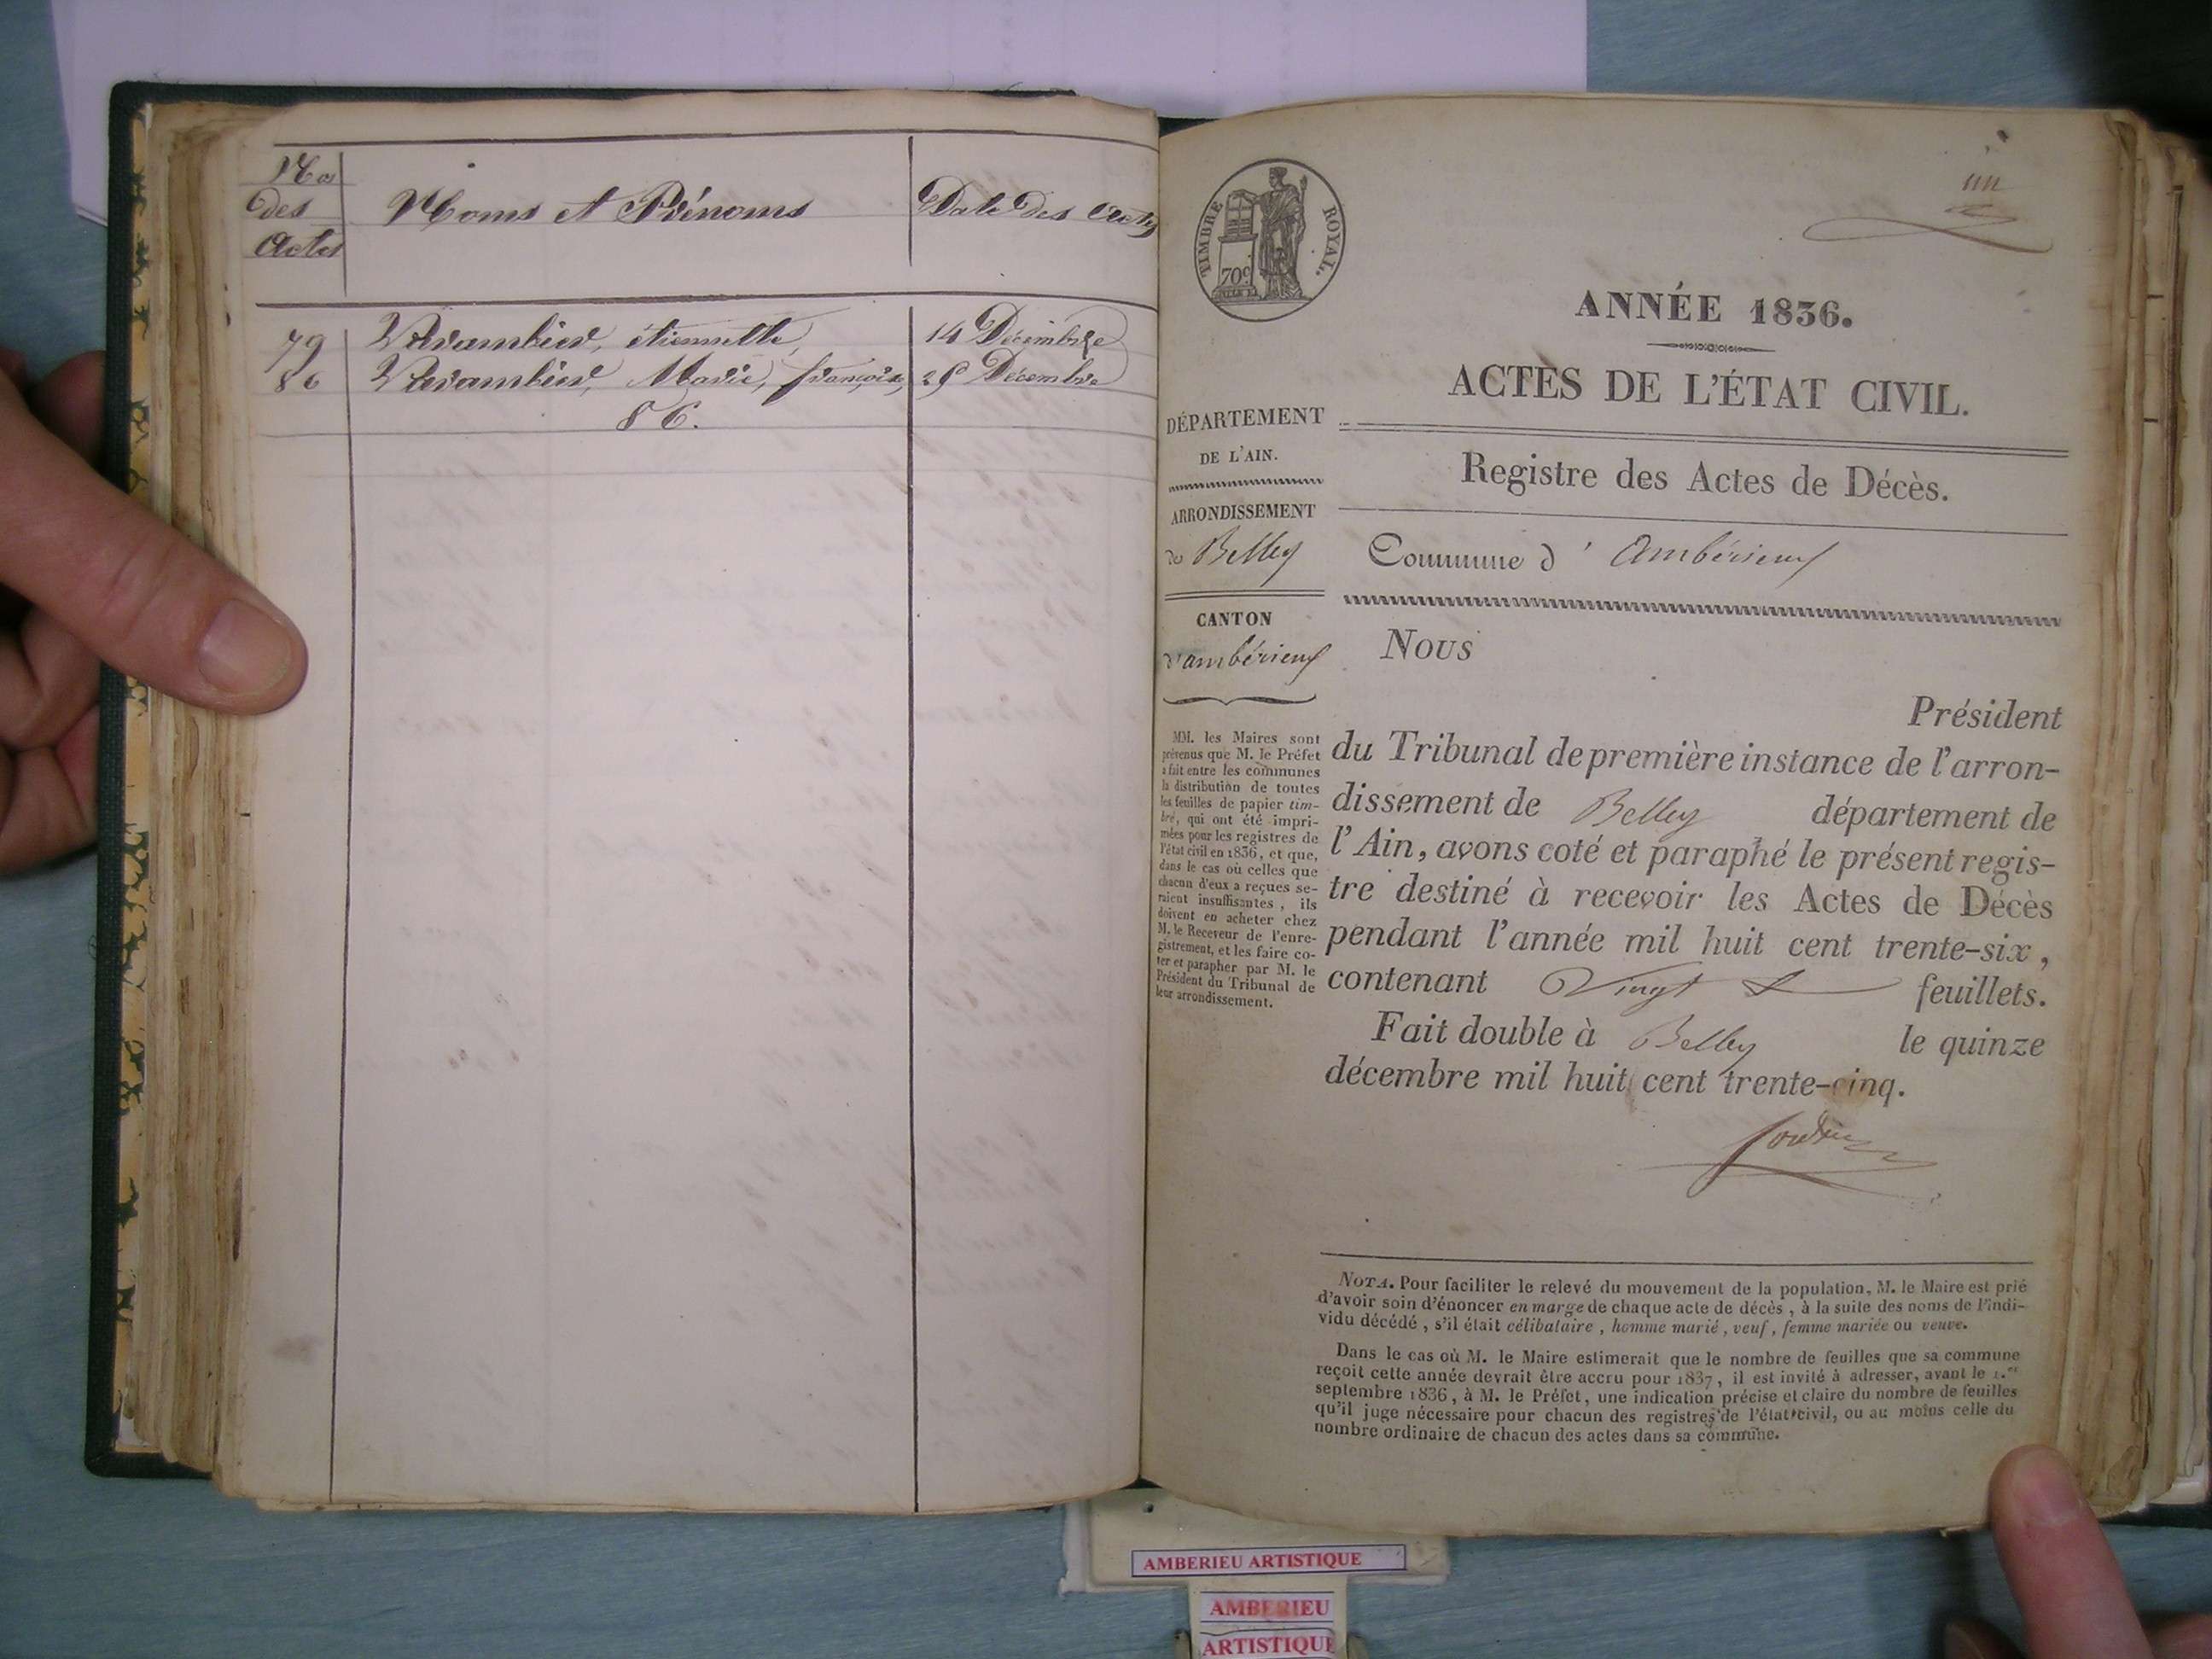 Nos
des
Actes
Noms et Prénoms
Date des Actes
79
Vavambier, étiennette,
14 Décembre
86
Vavambier, Marie, françoise,
29 Décembre
86.
un
TIMBRE ROYAL.
70c
ANNÉE 1836.
ACTES DE L'ÉTAT CIVIL.
DÉPARTEMENT
DE L'AIN.
ARRONDISSEMENT
de Belley
CANTON
d'ambérieux
MM. les Maires sont
prévenus que M. le Préfet
a fait entre les communes
la distribution de toutes
les feuilles de papier tim-
bré, qui ont été impri-
mées pour les registres de
l'état civil en 1836, et que,
dans le cas où celles que
chacun d'eux a reçues se-
raient insuffisantes, ils
doivent en acheter chez
M. le Receveur de l'enre-
gistrement, et les faire co-
ter et parapher par M. le
Président du Tribunal de
leur arrondissement.
Registre des Actes de Décès.
Commune d' Ambérieux
Nous
Président
du Tribunal de première instance de l'arron-
dissement de Belley département de
l'Ain, avons coté et paraphé le présent regis-
tre destiné à recevoir les Actes de Décès
pendant l'année mil huit cent trente-six,
contenant Vingt feuillets.
Fait double à Belley le quinze
décembre mil huit cent trente-cinq.
NOTA. Pour faciliter le relevé du mouvement de la population, M. le Maire est prié
d'avoir soin d'énoncer en marge de chaque acte de décès, à la suite des noms de l'indi-
vidu décédé, s'il était célibataire, homme marié, veuf, femme mariée ou veuve.
Dans le cas où M. le Maire estimerait que le nombre de feuilles que sa commune
reçoit cette année devrait être accru pour 1837, il est invité à adresser, avant le 1.er
septembre 1836, à M. le Préfet, une indication précise et claire du nombre de feuilles
qu'il juge nécessaire pour chacun des registres de l'état civil, ou au moins celle du
nombre ordinaire de chacun des actes dans sa commune.
AMBERIEU ARTISTIQUE
AMBERIEU
ARTISTIQUE